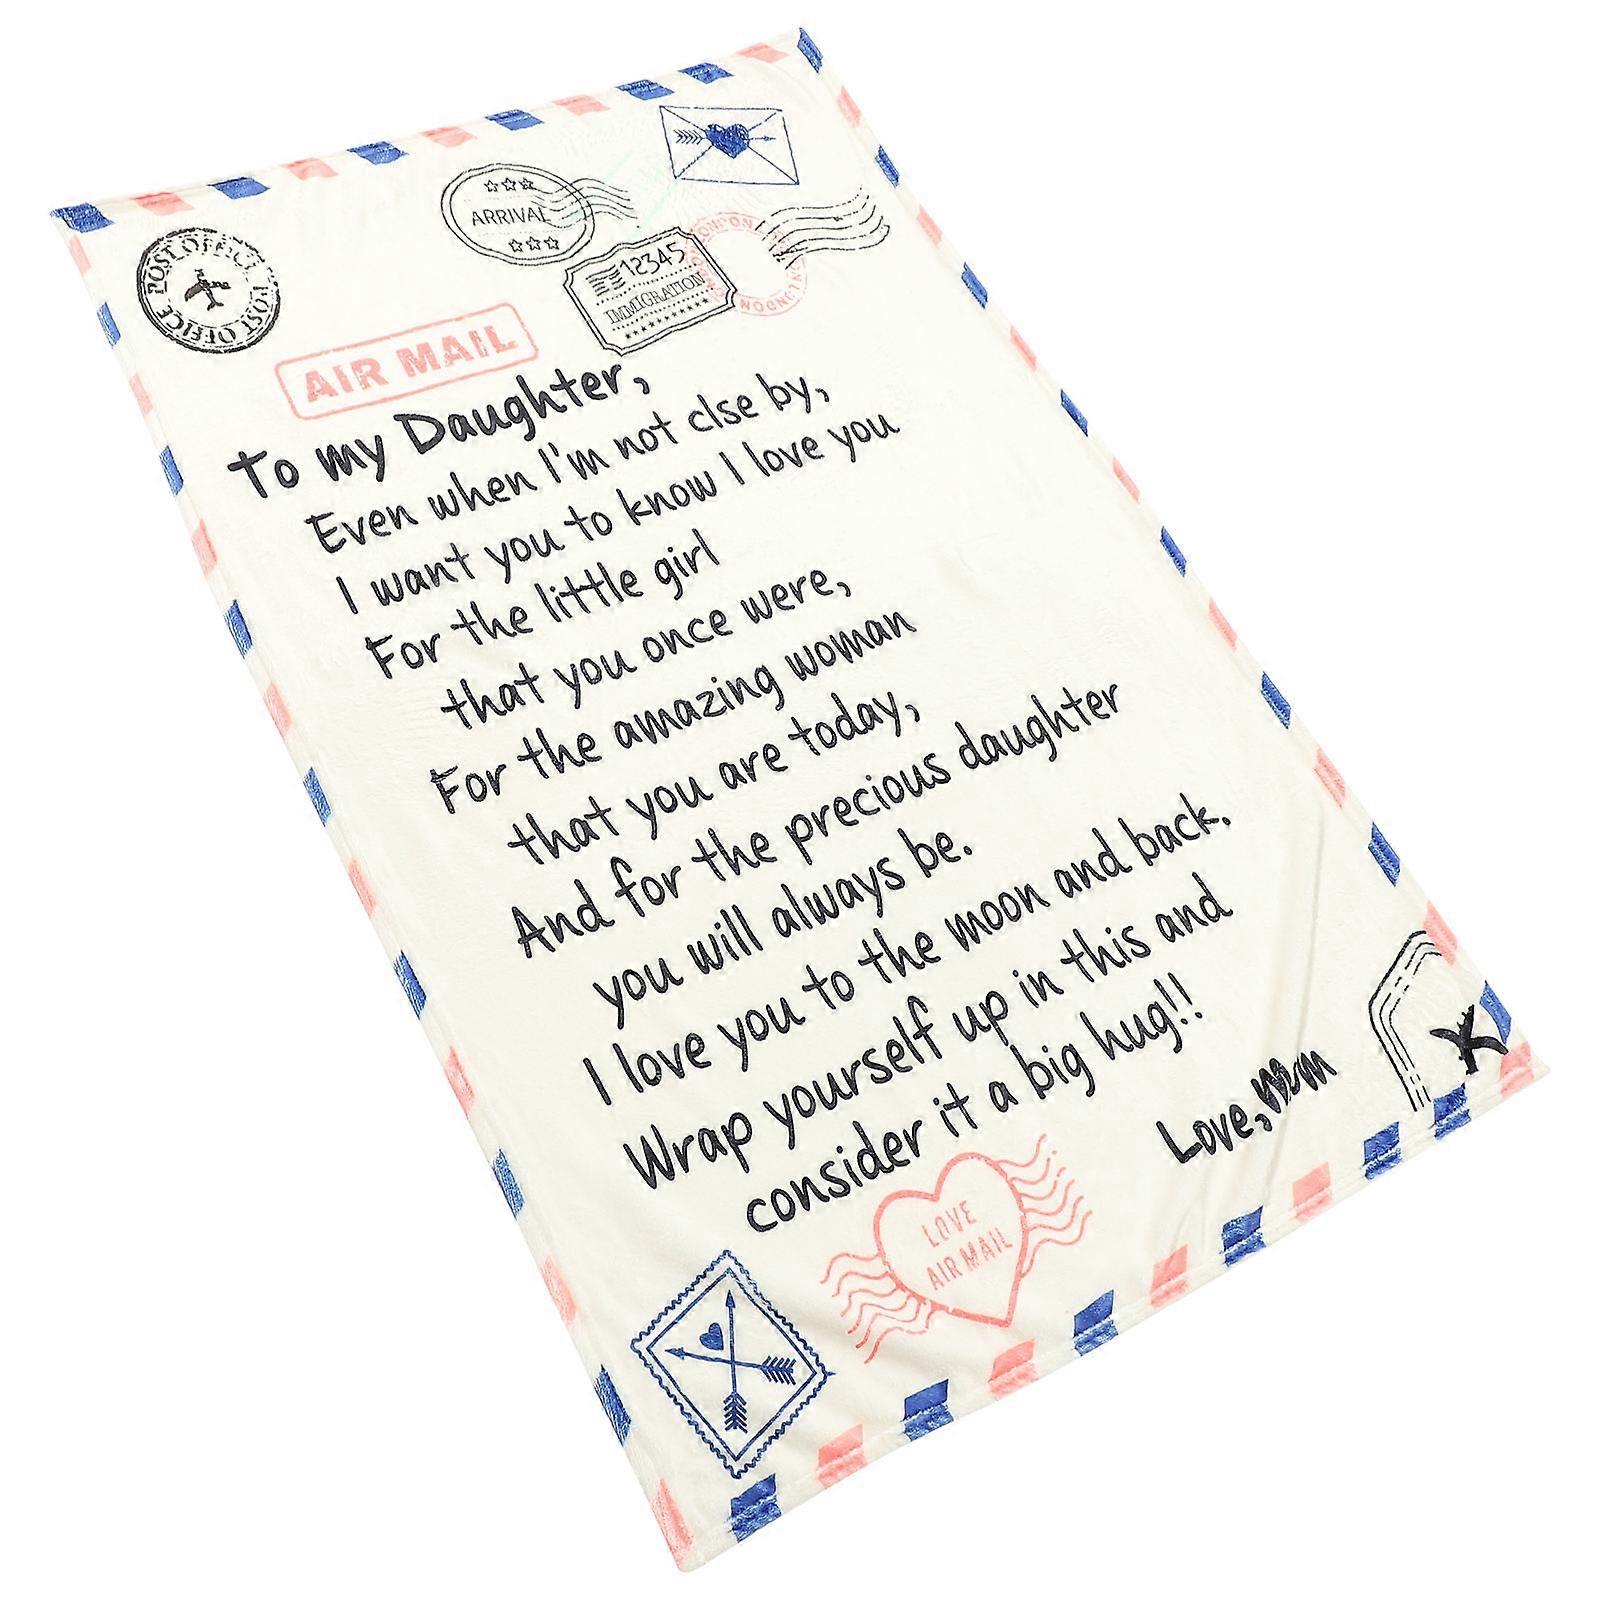 POST OFFICE POST OFFICE
ARRIVAL
12345
IMMIGRATION
LONDON
LONDON
AIR MAIL
To my Daughter,
Even when I'm not clse by,
I want you to know I love you
For the little girl
that you once were,
For the amazing woman
that you are today,
And for the precious daughter
you will always be.
I love you to the moon and back.
Wrap yourself up in this and
consider it a big hug!!
Love, mom
LOVE
AIR MAIL